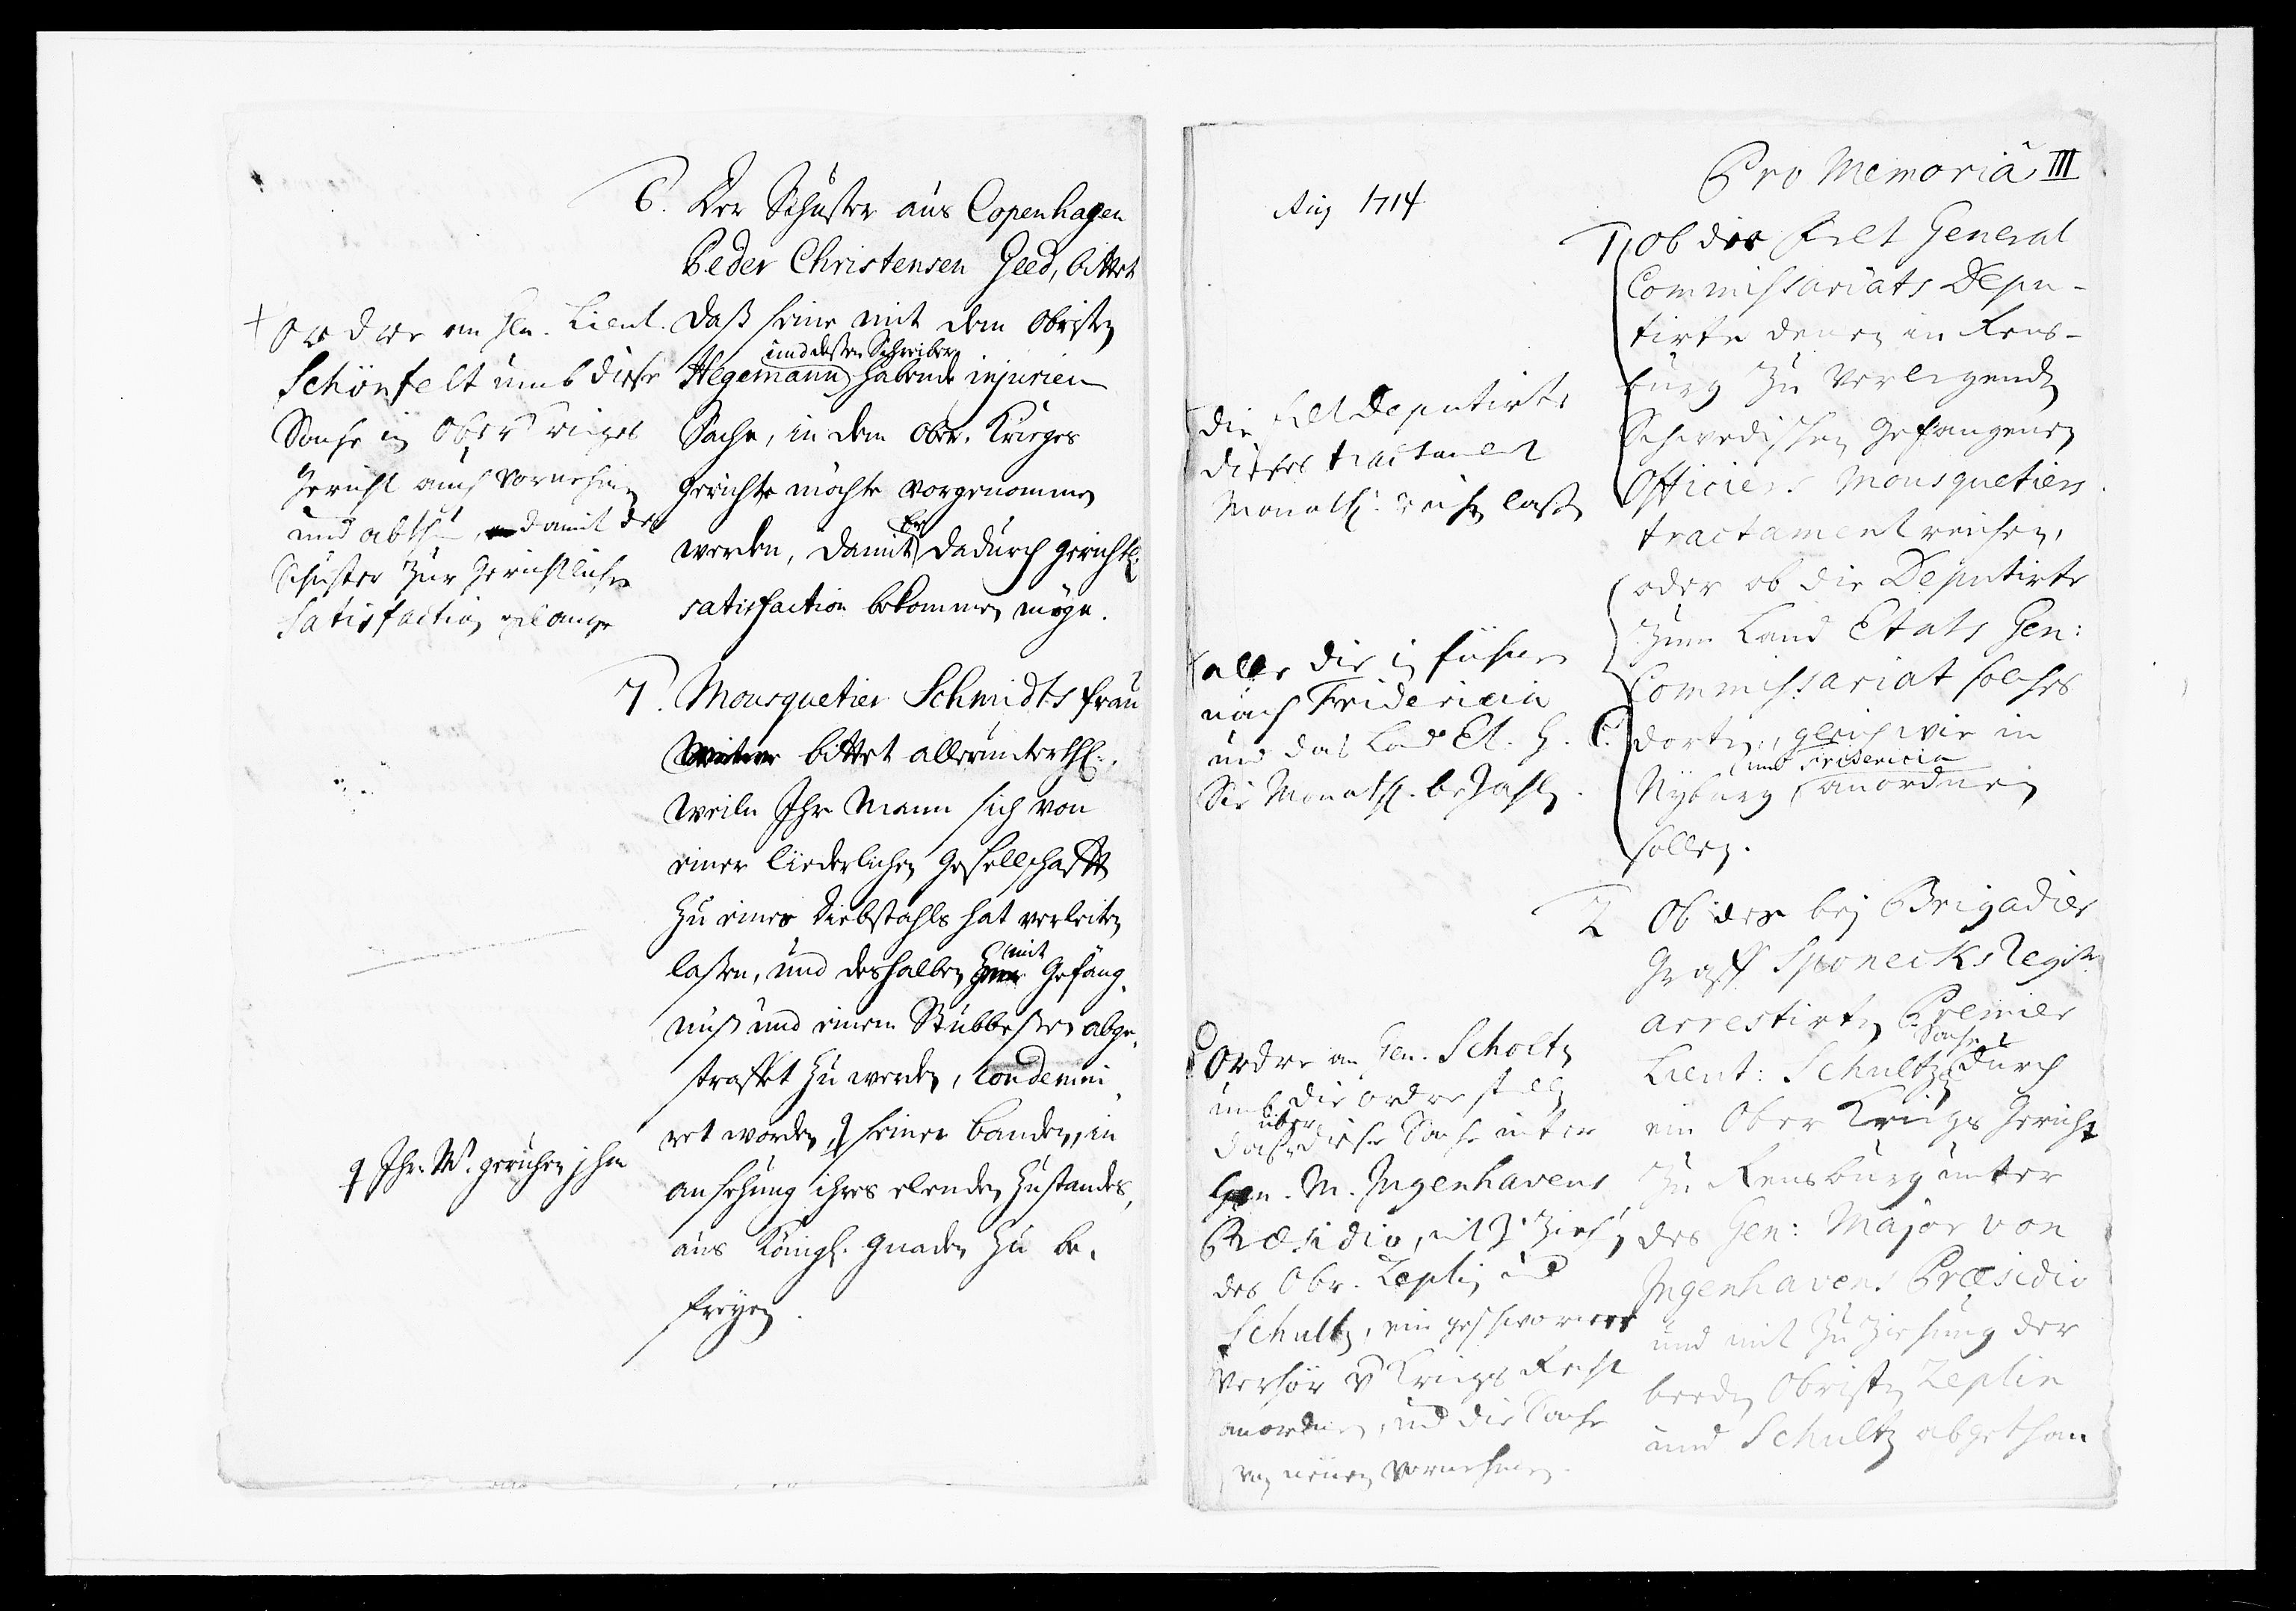 6. Der Schuster aus Copenhagen
Peder Christensen Geed, bittet
daß seine mit dem Obristen
und deßen Schreiber
Hegemann habende injurien
Sache, in dem Ober. Krieges
gerichte möchte vorgenommen
werden, damit Er dadurch gerichtl:
satisfaction bekommen möge.
+ Ordre an Gen. Lieut.
Schönfelt umb diese
Sache in Ober Krieges
Gericht auch vornehmen
und abthun, damit der
Schuster zur Gerichtlichen
Satisfaction gelange
7. Mousquetier Schmidts frau
bittet allerunterthl:,
weiln Ihr Mann sich von
einer liederlichen Gesellschafft
zu einer Diebstahls hat verleiten
laßen, und deshalben mit Gefäng,
nuß und einem Stubbesten abge,
strafft zu werden, condemni,
ret worden, seiner banden, in
ansehung ihres elenden Zustandes,
aus Königl. Gnaden zu be,
freyen.
Ihr. M. geruhen ihn
Aug 1714
Pro Memoria III
1, Ob die Felt General
Commissariats Depu-
tirte denen in Rens-
burg zu verlegenden
Schwedischen Gefangenen
Officiers Mousquetiers
tractament reichen,
oder ob die Deputirte
zum Land Etats Gen:
Commissariat solches
dorten, gleich wie in
und Fridericia
Nyburg anordnen
sollen.
die Felt Deputirte
dieses tractament
Monatl: reichen laßen
alle die in führen
nach Fridericia
und das Land Et. G. C.
Sie Monatl. bezahlen.
2 Ob der bey Brigadier
Graff Sponecks Regim.
arrestirten Premier
Lieut: Schultzen Sache durch
ein Ober Kriegs Gericht
zu Rensburg unter
des Gen: Major von
Ingenhavens Præsidio
und mit Zuziehung der
beeden Obristen Zeplin
und Schultz abgethan
Ordre an Gen. Scholten
umb die ordre stellen
daß über diese Sache unter
Gen. M. Ingenhavens
Præsidio, mit Zuziehung
des Obr. Zeplin und
Schultz, ein geschworenes
Verhör und Kriegs Recht
anordnen, und die Sache
von neuen vornehmen.